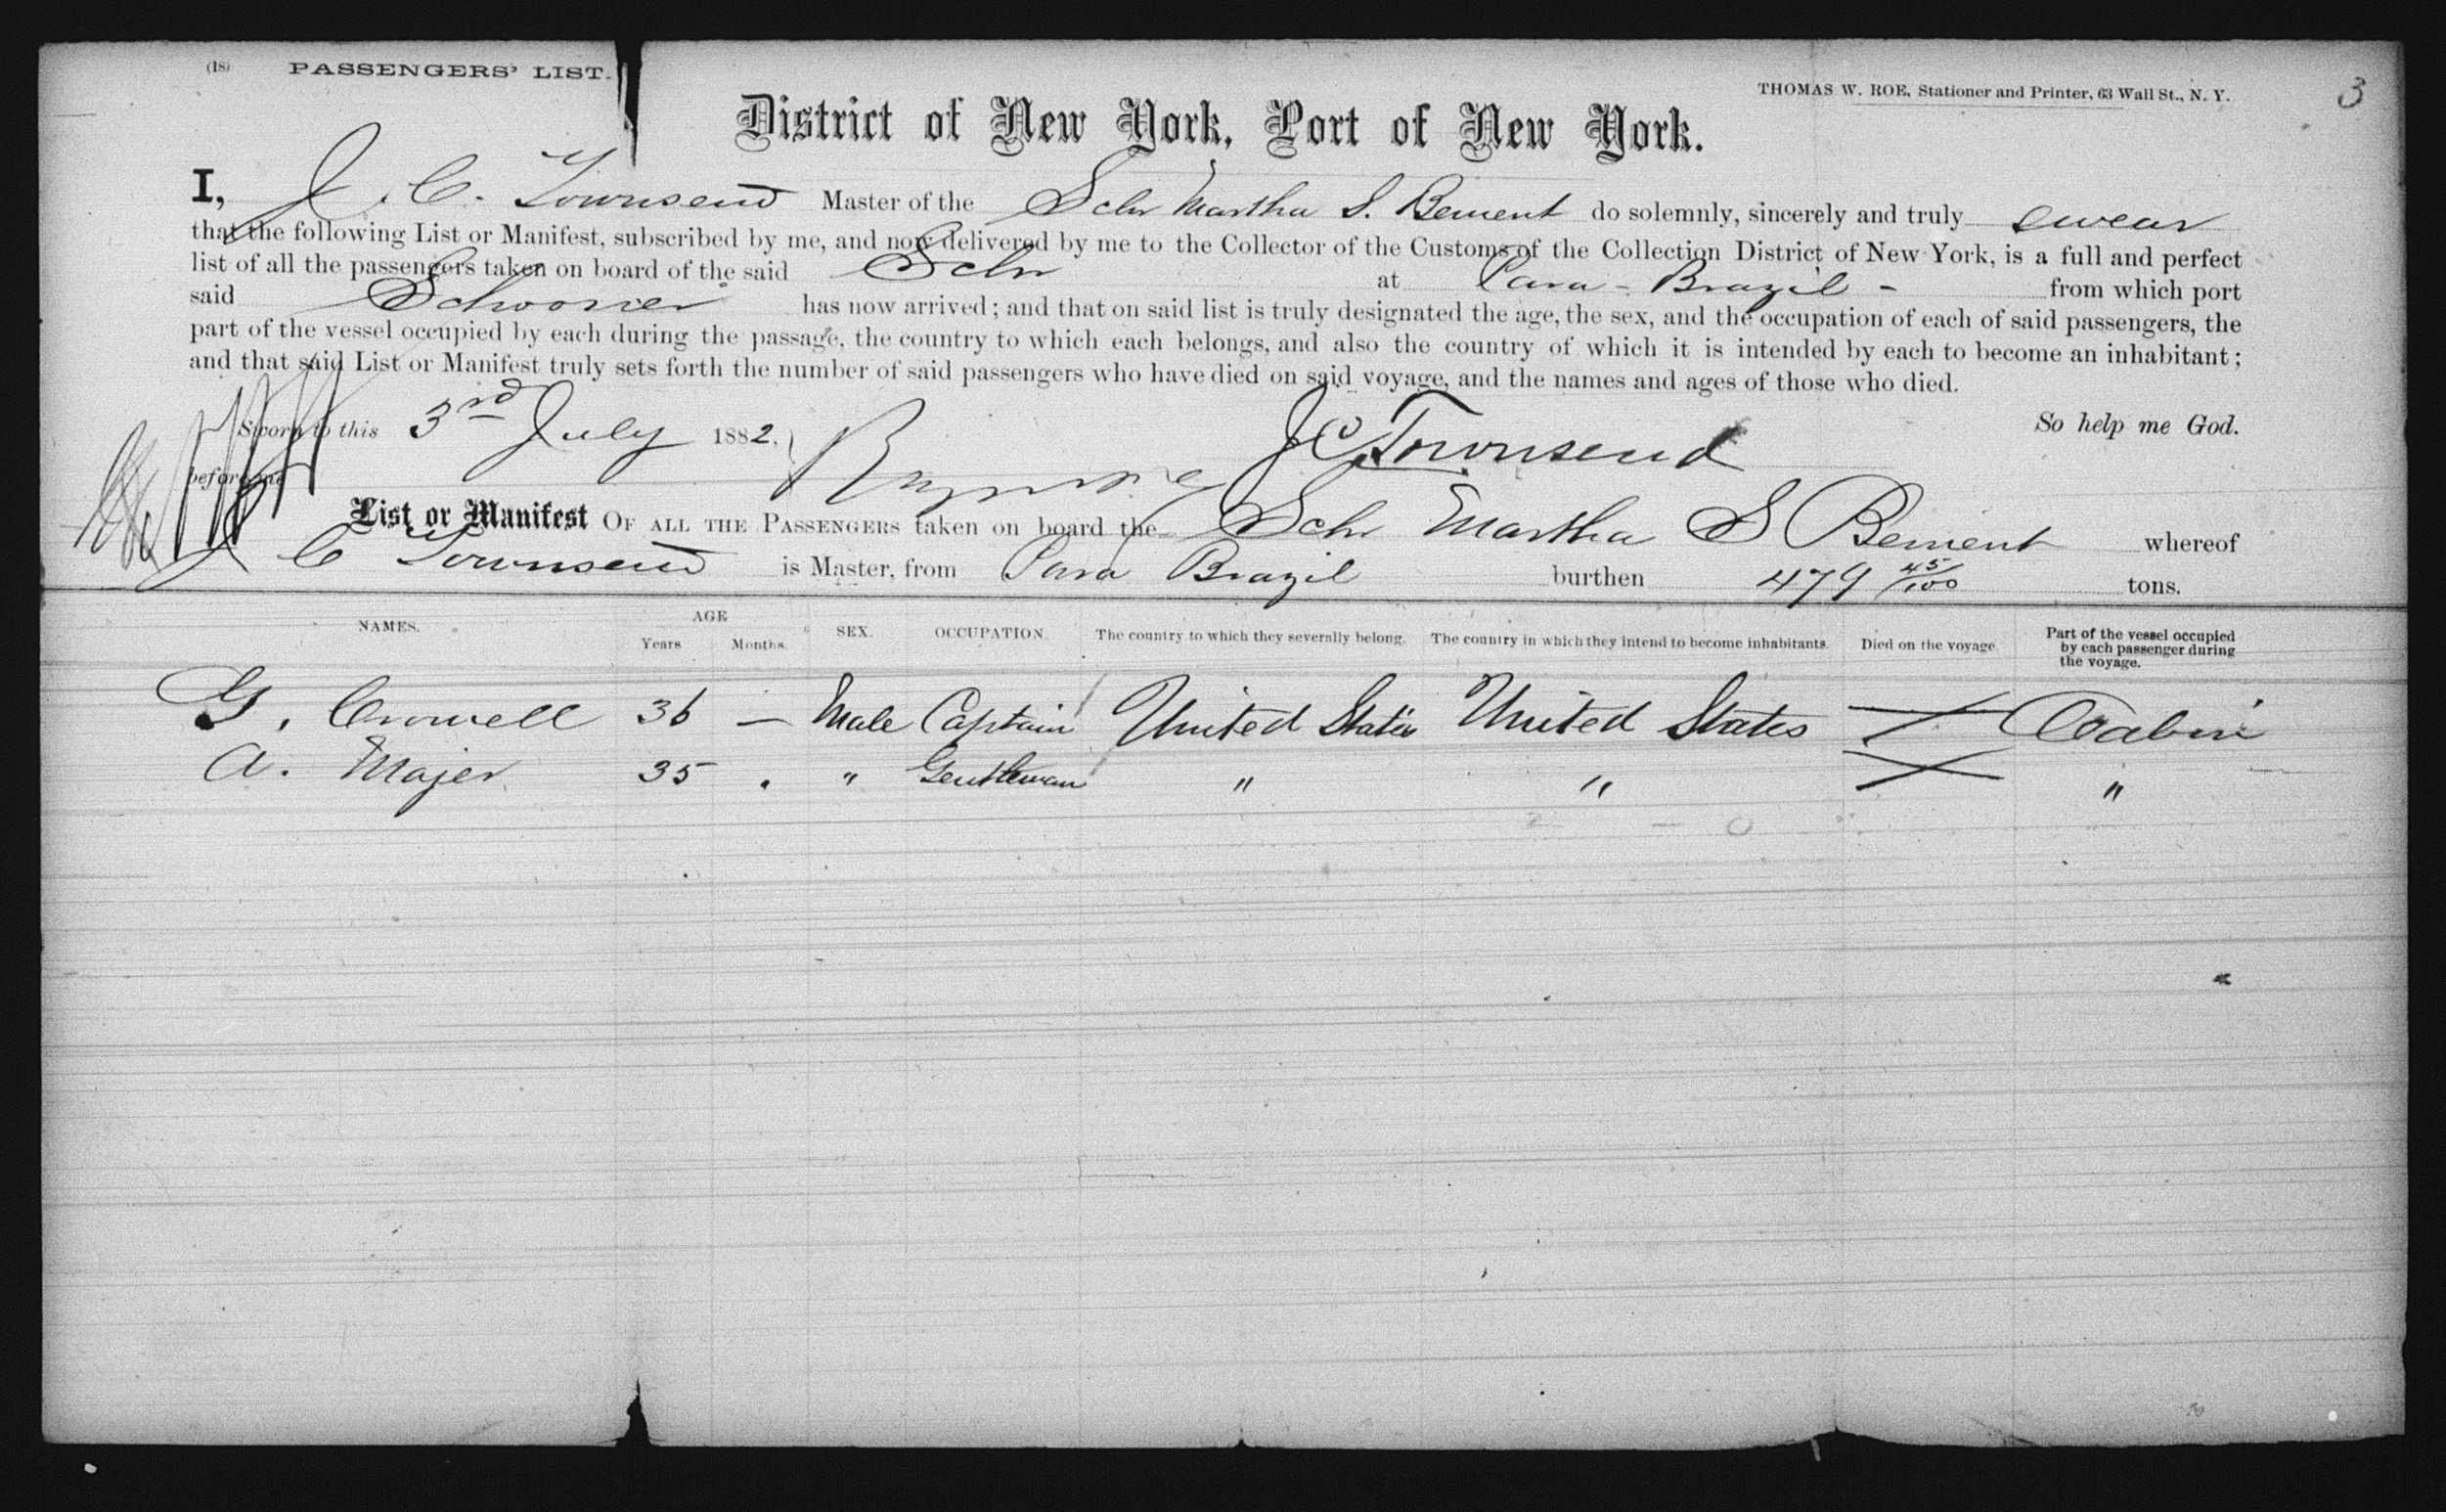 (18) PASSENGERS' LIST.
THOMAS W. ROE, Stationer and Printer, 63 Wall St., N. Y.
3
District of New York, Port of New York.
I, J. C. Townsend Master of the Schr Martha S. Bement do solemnly, sincerely and truly swear
that the following List or Manifest, subscribed by me, and now delivered by me to the Collector of the Customs of the Collection District of New York, is a full and perfect
list of all the passengers taken on board of the said Schr at Para - Brazil - from which port
said Schooner has now arrived; and that on said list is truly designated the age, the sex, and the occupation of each of said passengers, the
part of the vessel occupied by each during the passage, the country to which each belongs, and also the country of which it is intended by each to become an inhabitant;
and that said List or Manifest truly sets forth the number of said passengers who have died on said voyage, and the names and ages of those who died.
So help me God.
Sworn to this 3rd July 1882.
J C Townsend
before me
List or Manifest OF ALL THE PASSENGERS taken on board the Schr Martha S Bement whereof
J C Townsend is Master, from Para Brazil burthen 479 45/100 tons.
NAMES. AGE Years Months. SEX. OCCUPATION. The country to which they severally belong. The country in which they intend to become inhabitants. Died on the voyage. Part of the vessel occupied by each passenger during the voyage.
G. Crowell 36 — Male Captain United States United States Cabin
A. Majer 35 . " Gentleman " " "